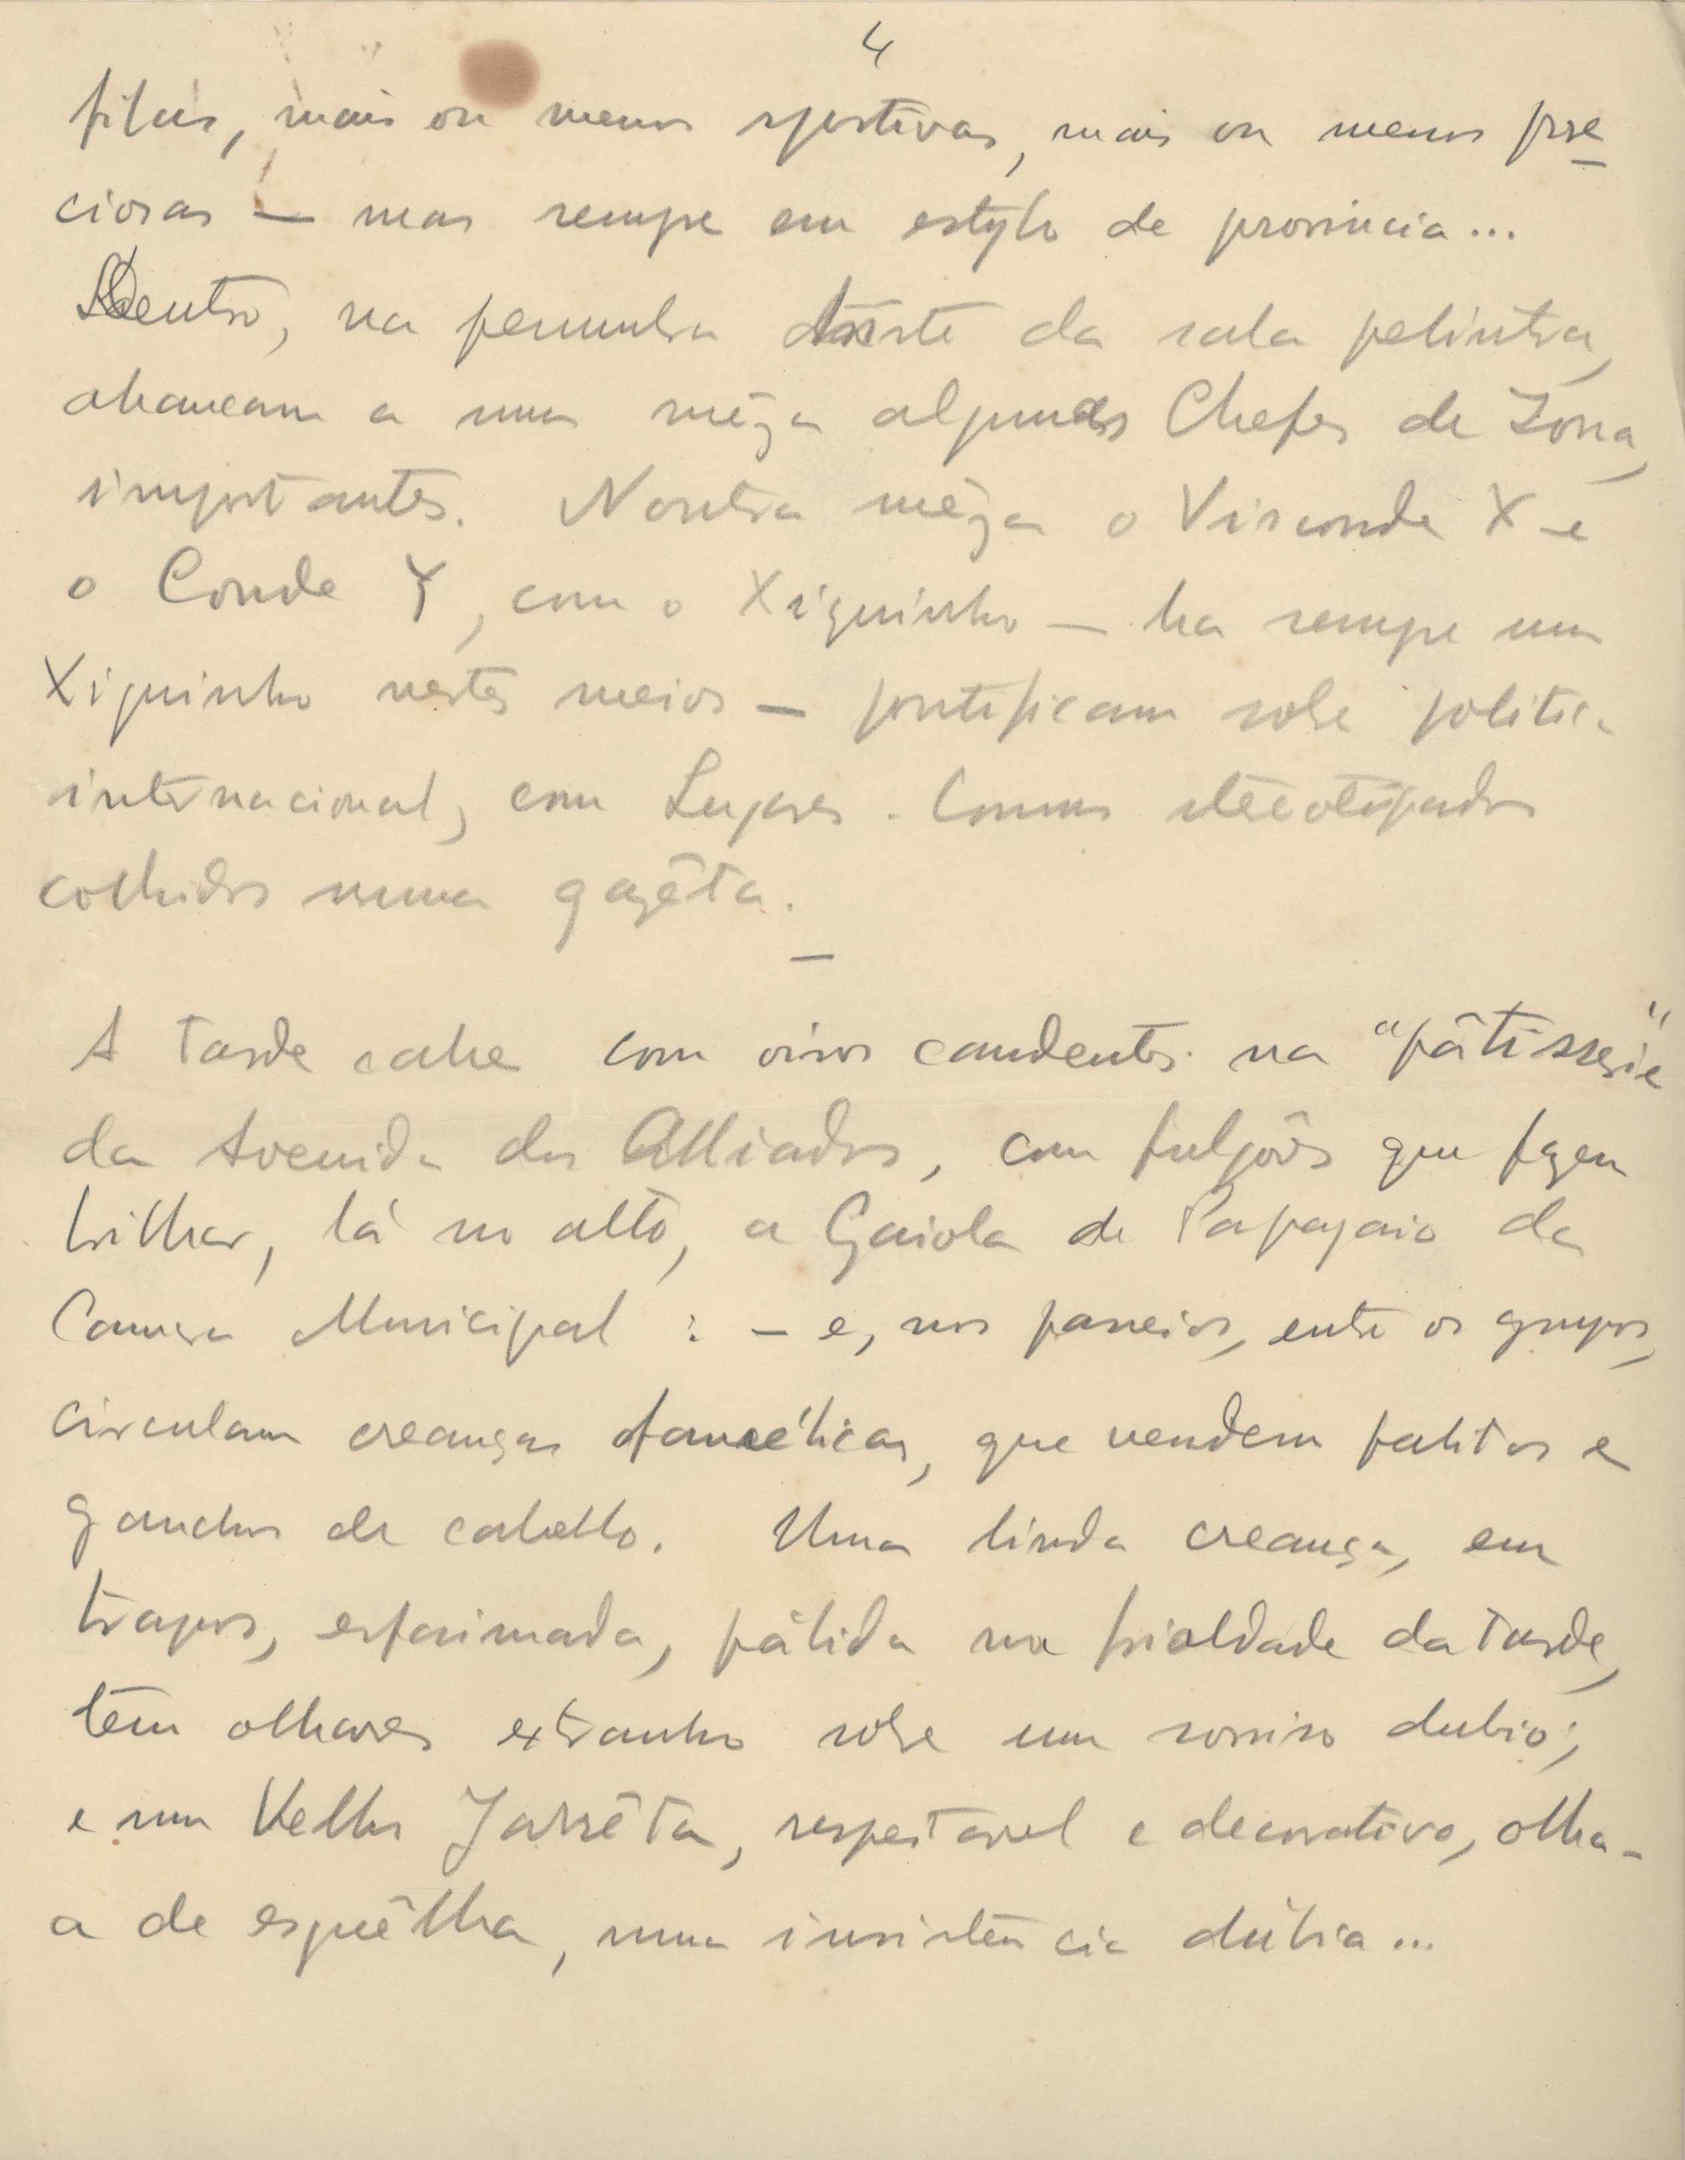 4
filas, mais ou menos sportivas, mais ou menos pre
ciosas — mas sempre em estylo de provincia...
Dentro, na penumbra triste da sala pelintra,
abancam a uma mêza alguns Chefes de Zona,
importantes. Noutra mêza o Visconde X e
o Conde Y, com o Xiquinho — ha sempre um
Xiquinho nestes meios — pontificam sobre politica
internacional, com Lugares. Comuns stereotipados
colhidos numa gazêta.
—
A tarde cahe com oiros candentes na "pâtisserie"
da Avenida dos Alliados, com fulgôres que fazem
brilhar, lá no alto, a Gaiola de Papagaio da
Camara Municipal : — e, nos passeios, entre os grupos,
circulam creanças famélicas, que vendem palitos e
ganchos de cabello. Uma linda creança, em
trapos, esfaimada, pálida na frialdade da tarde,
tem olhares extranhos sobre um sorriso dubio;
e um Velho Jarrêta, respeitavel e decorativo, olha-
a de esguêlha, numa insistência dúbia...